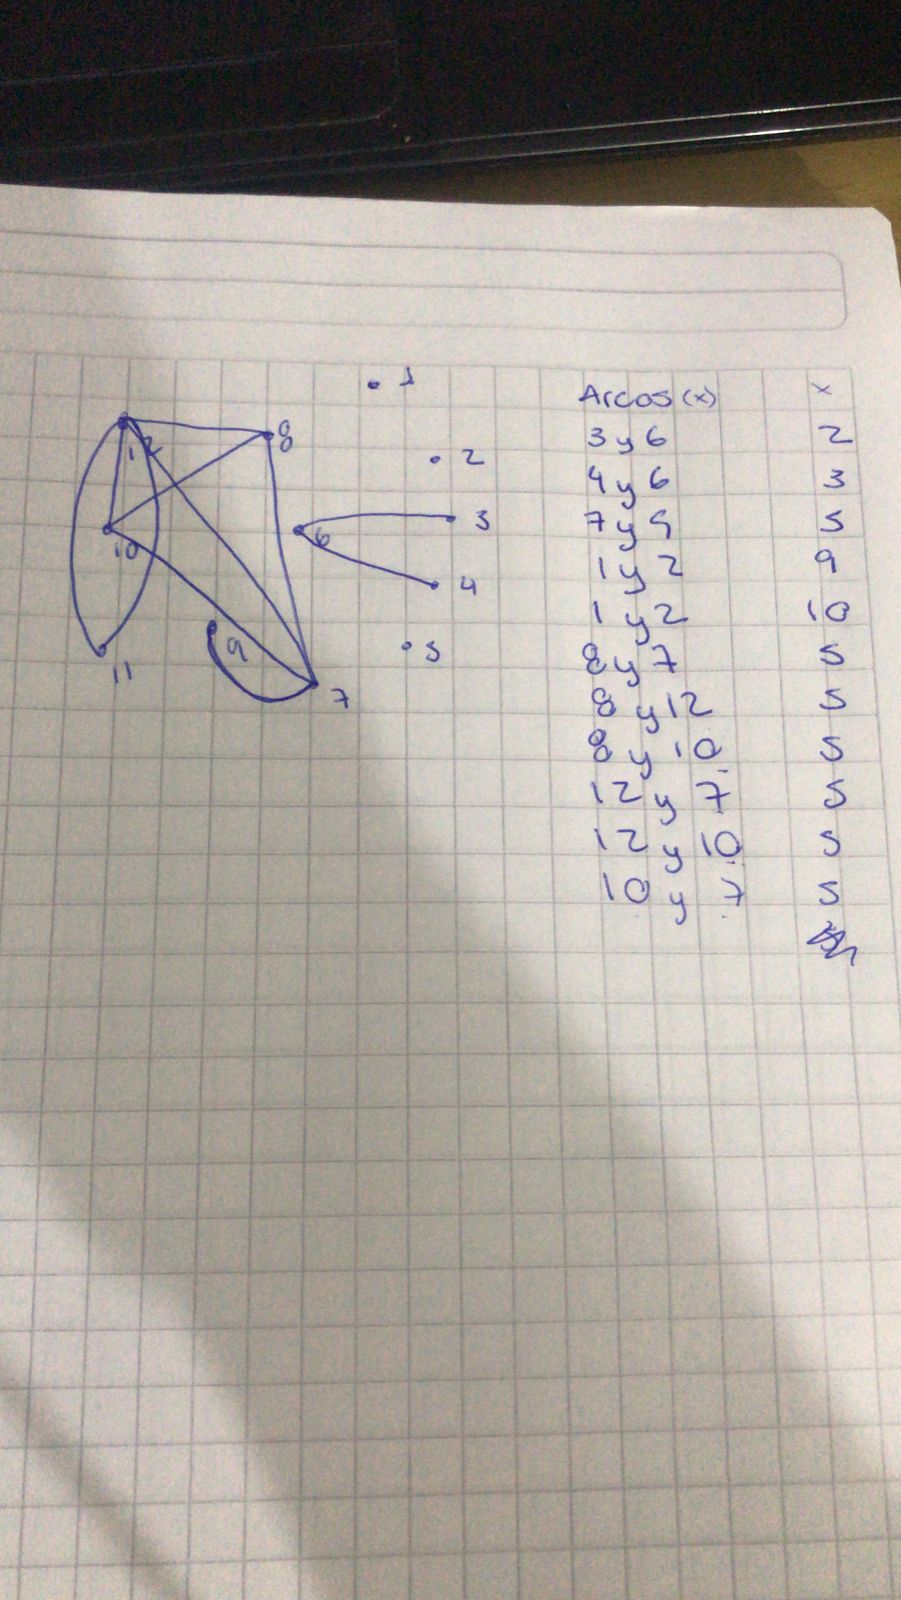 1
12
8
2
3
6
4
10
5
9
11
7
Arcos (x) x
3 y 6 2
4 y 6 3
7 y 9 5
1 y 2 9
1 y 2 10
8 y 7 5
8 y 12 5
8 y 10 5
12 y 7 5
12 y 10 5
10 y 7 5